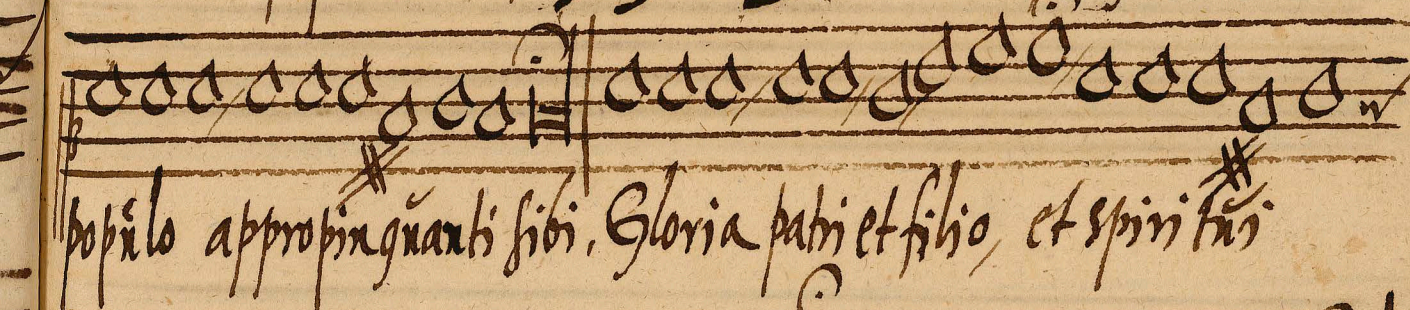 popůlo appropinquanti sibi. Gloria patri et filio, et spiritŭi